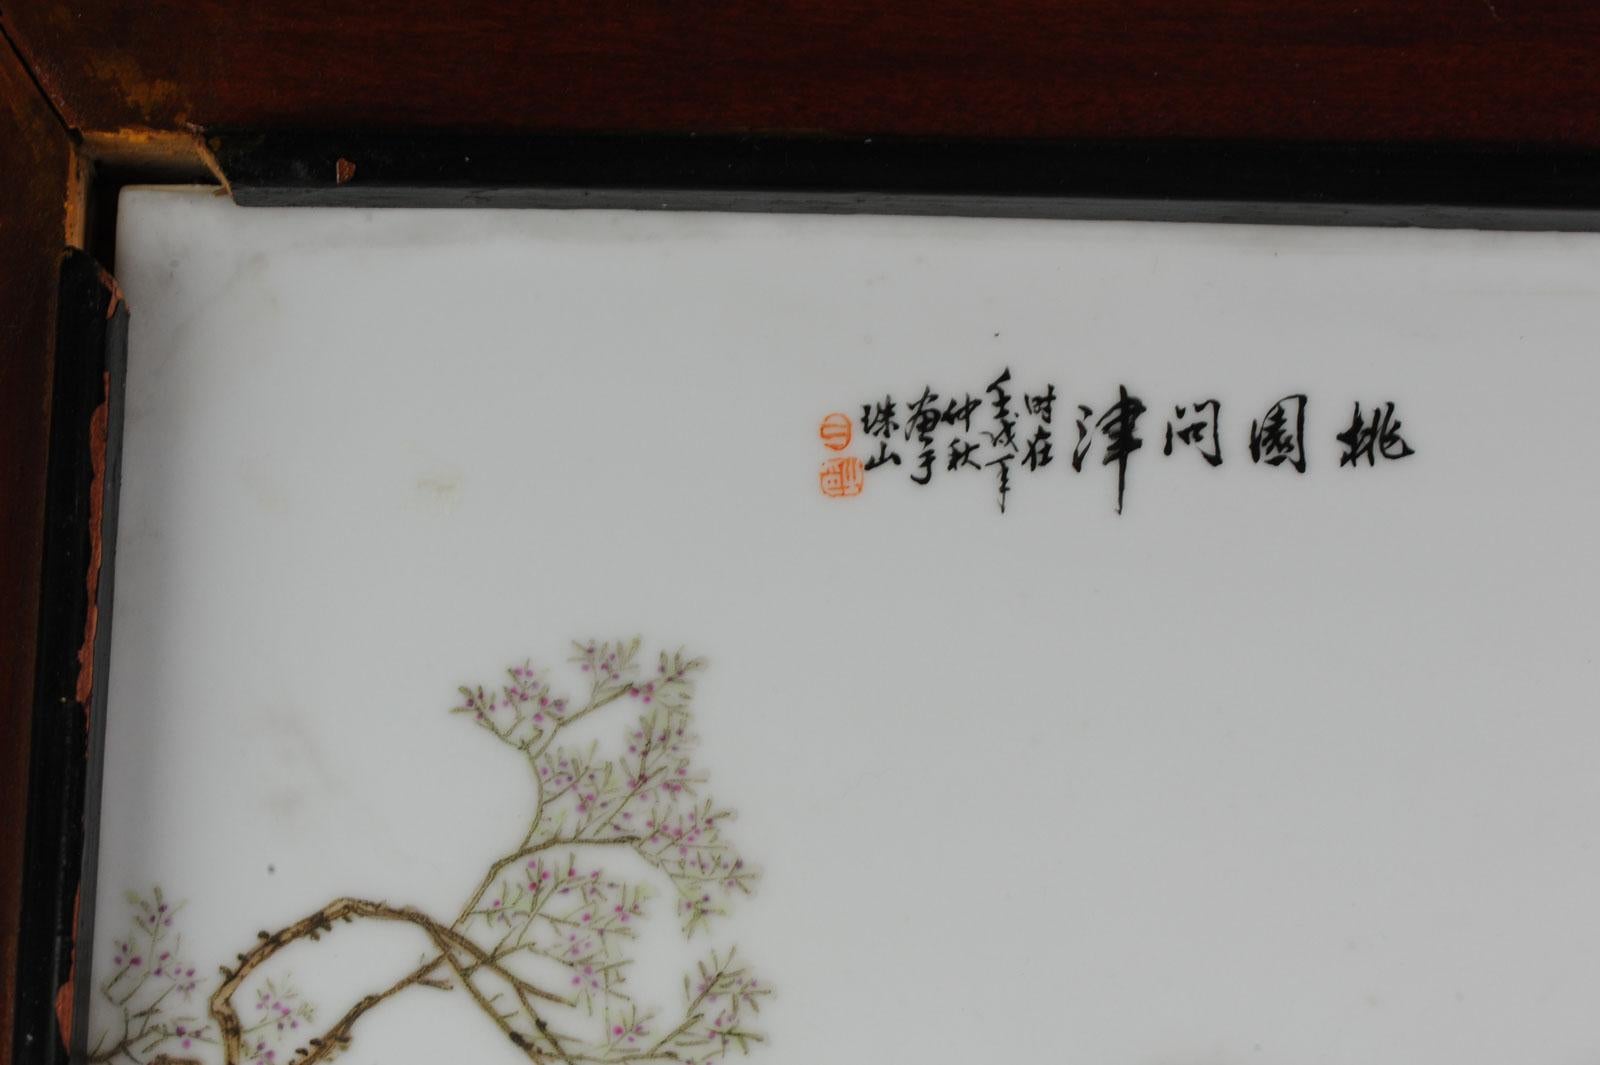 桃園问津
时在
壬戌年
仲秋
画于
珠山